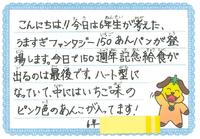 こんにちは!!今日は6年生が考えた、
うますぎファンタジー150あんパンが登
場します。今日で150週年記念給食が
出るのは最後です。ハート型に
なっていて、中にはいちご味の
ピンク色のあんこが入ってます!
6年